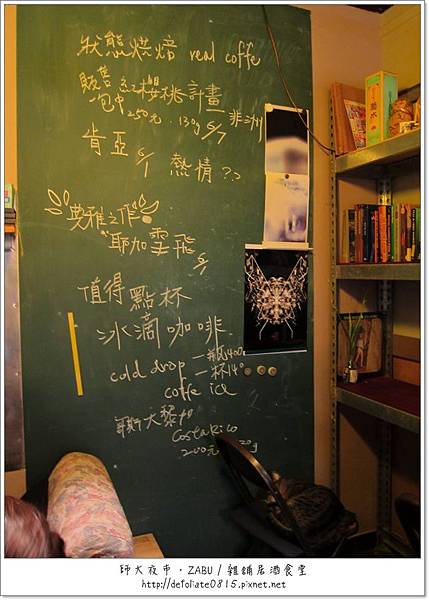 狀態烘焙 real coffe
販售 紅櫻桃計畫
一包中250元．130g 6/7 非洲
肯亞 6/1 熱情??
典雅之作
耶加雪飛 6/1
值得點杯
冰滴咖啡
cold drop 一瓶400
一杯140
coffe ice
哥斯大黎加
Costa Rico
200元
師大夜市・ZABU / 雜鋪居酒食堂
http://defoliate0815.pixnet.net